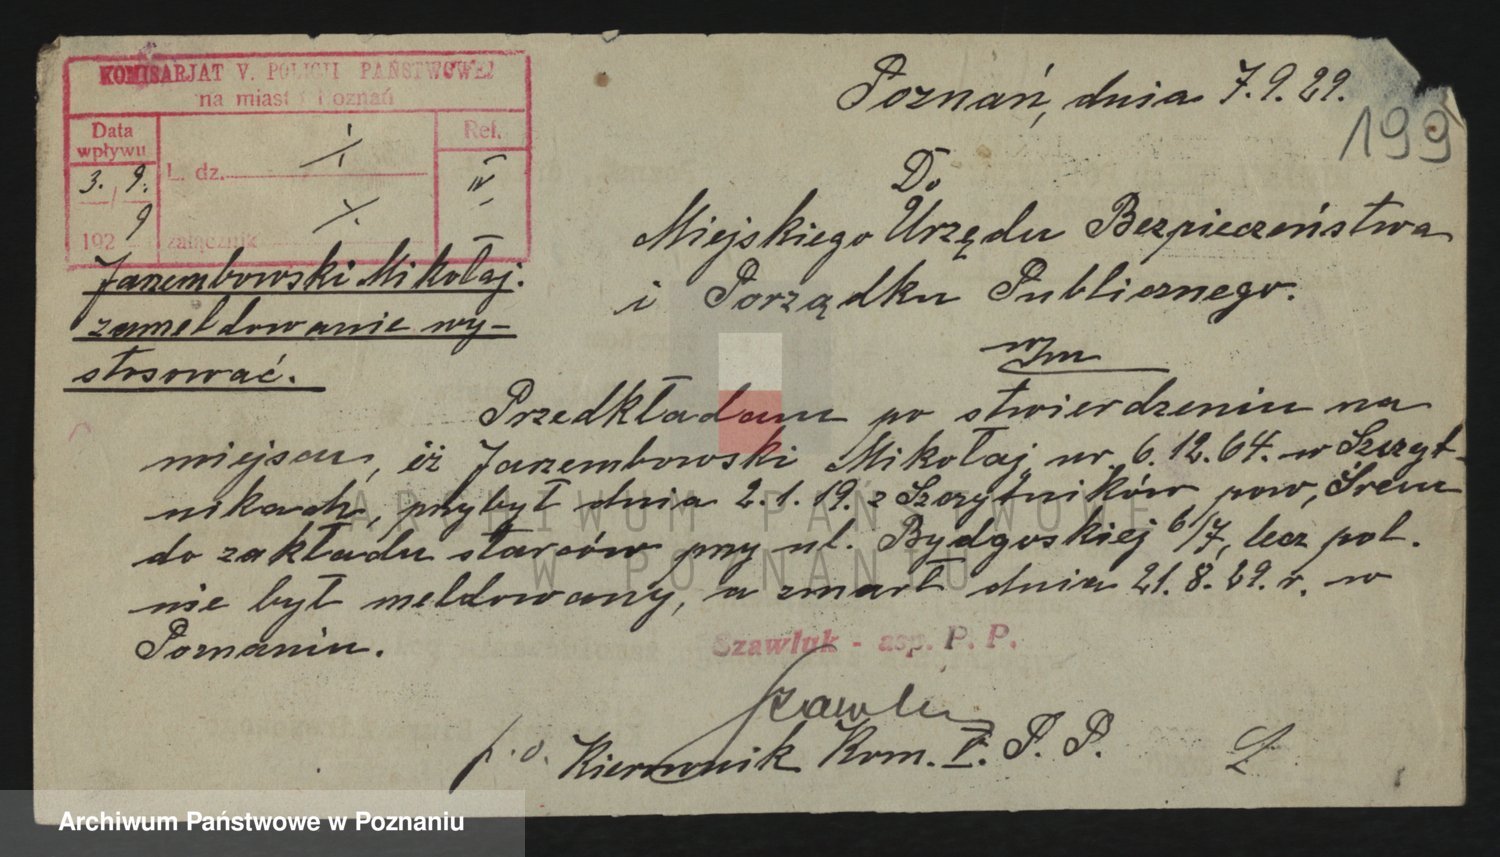 KOMISARJAT V. POLICJI PAŃSTWOWEJ
na miasto Poznań
Data wpływu
3. 9.
192 9
L. dz.
załącznik
Ref.
IV
Jarzembowski Mikołaj.
zameldowanie wy-
stosować.
Poznań, dnia 7.9.29.
199
Do
Miejskiego Urzędu Bezpieczeństwa
i Porządku Publicznego.
w/m
Przedkładam po stwierdzeniu na
miejscu, iż Jarzembowski Mikołaj, ur. 6.12.64. w Szczyt-
nikach, przybył dnia 2.1.19. z Szczytników pow, Śrem
do zakładu starców przy ul. Bydgoskiej 6/7, lecz pol.
nie był meldowany, a zmarł dnia 21.8.29. r. w
Poznaniu.
Szawluk - asp. P. P.
p.o. Kierownik Kom. V. P. P.
ARCHIWUM PAŃSTWOWE
W POZNANIU
Archiwum Państwowe w Poznaniu